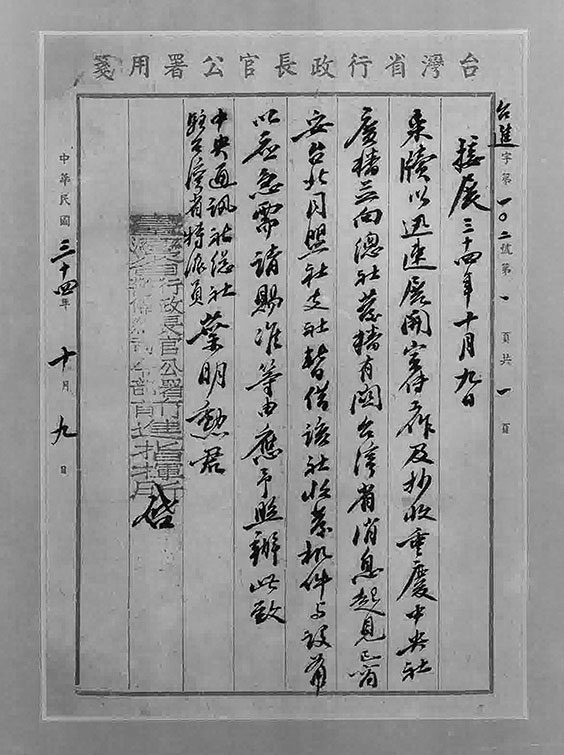 台灣省行政長官公署用箋
台進字第一〇二號第一頁共一頁
接展三十四年十月九日
來牘以迅速展開宣傳工作及抄收重慶中央社
廣播並向總社發播有関台湾省消息起見已商
妥台北同盟社支社暫借該社收發机件与設備
以应急需請賜准等由應予照辦此致
中央通訊社總社
駐台灣省特派員
葉明勳君
臺灣省行政長官公署
前進指揮所
啟
中華民國三十四年十月九日